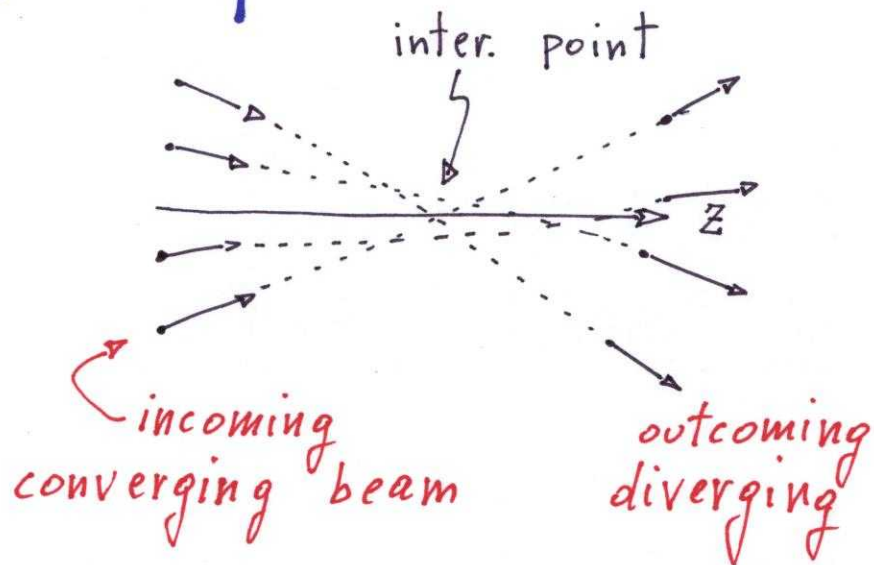 inter. point
Z
incoming
converging beam
outcoming
diverging